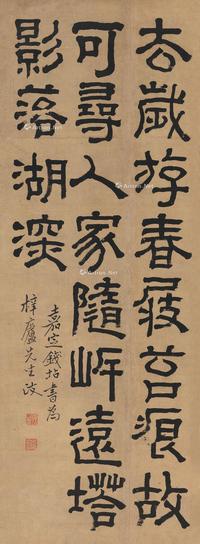 去歲游春屐苔痕故
可尋人家隨岸遠塔
影落湖深
嘉定錢坫書為
梓廬先生政